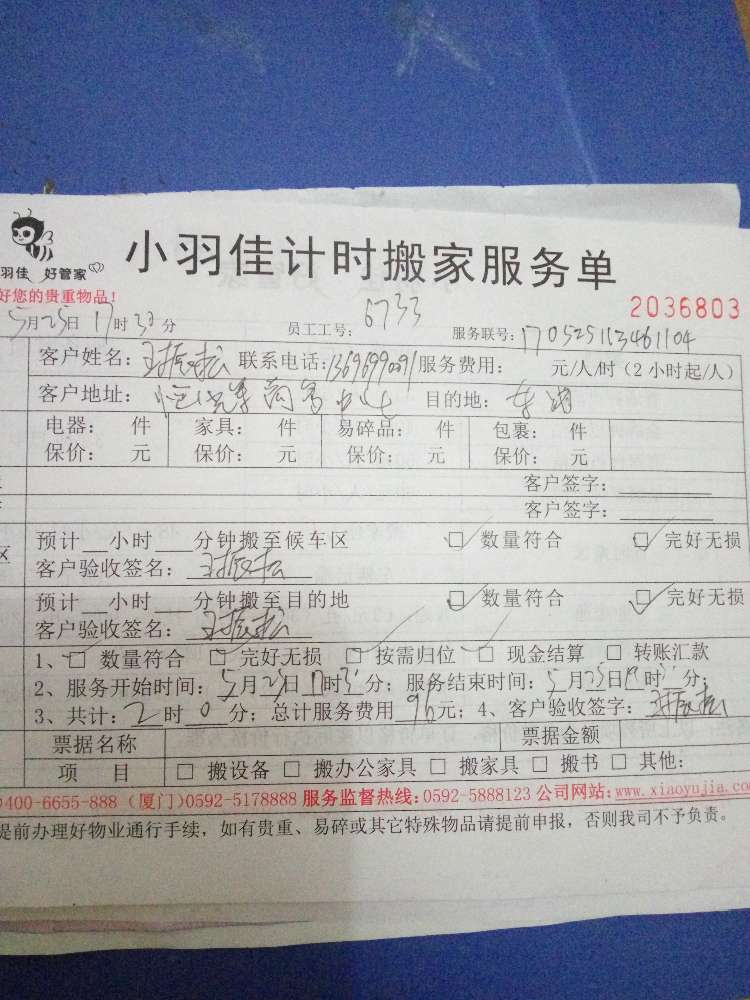 小羽佳计时搬家服务单
羽佳 好管家
好您的贵重物品!
2036803
5月25日17时30分 员工工号: 6733 服务联号: 170525113461104
客户姓名: 王振松 联系电话: 服务费用: 元/人/时 (2小时起/人)
客户地址: 商务中心 目的地: 东湖
电器: 件 家具: 件 易碎品: 件 包裹: 件
保价: 元 保价: 元 保价: 元 保价: 元
客户签字:
客户签字:
预计__小时___分钟搬至候车区 □ 数量符合 □ 完好无损
客户验收签名: 王振松
预计__小时___分钟搬至目的地 □ 数量符合 □ 完好无损
客户验收签名: 王振松
1、□ 数量符合 □ 完好无损 □ 按需归位 □ 现金结算 □ 转账汇款
2、服务开始时间: 5月25日17时3 分; 服务结束时间: 5月25日19时3 分;
3、共计: 2时0分; 总计服务费用 96元; 4、客户验收签字: 王振松
票据名称 票据金额
项 目 □ 搬设备 □ 搬办公家具 □ 搬家具 □ 搬书 □ 其他:
400-6655-888 (厦门)0592-5178888 服务监督热线:0592-5888123 公司网站:www.xiaoyujia.com
提前办理好物业通行手续，如有贵重、易碎或其它特殊物品请提前申报，否则我司不予负责。